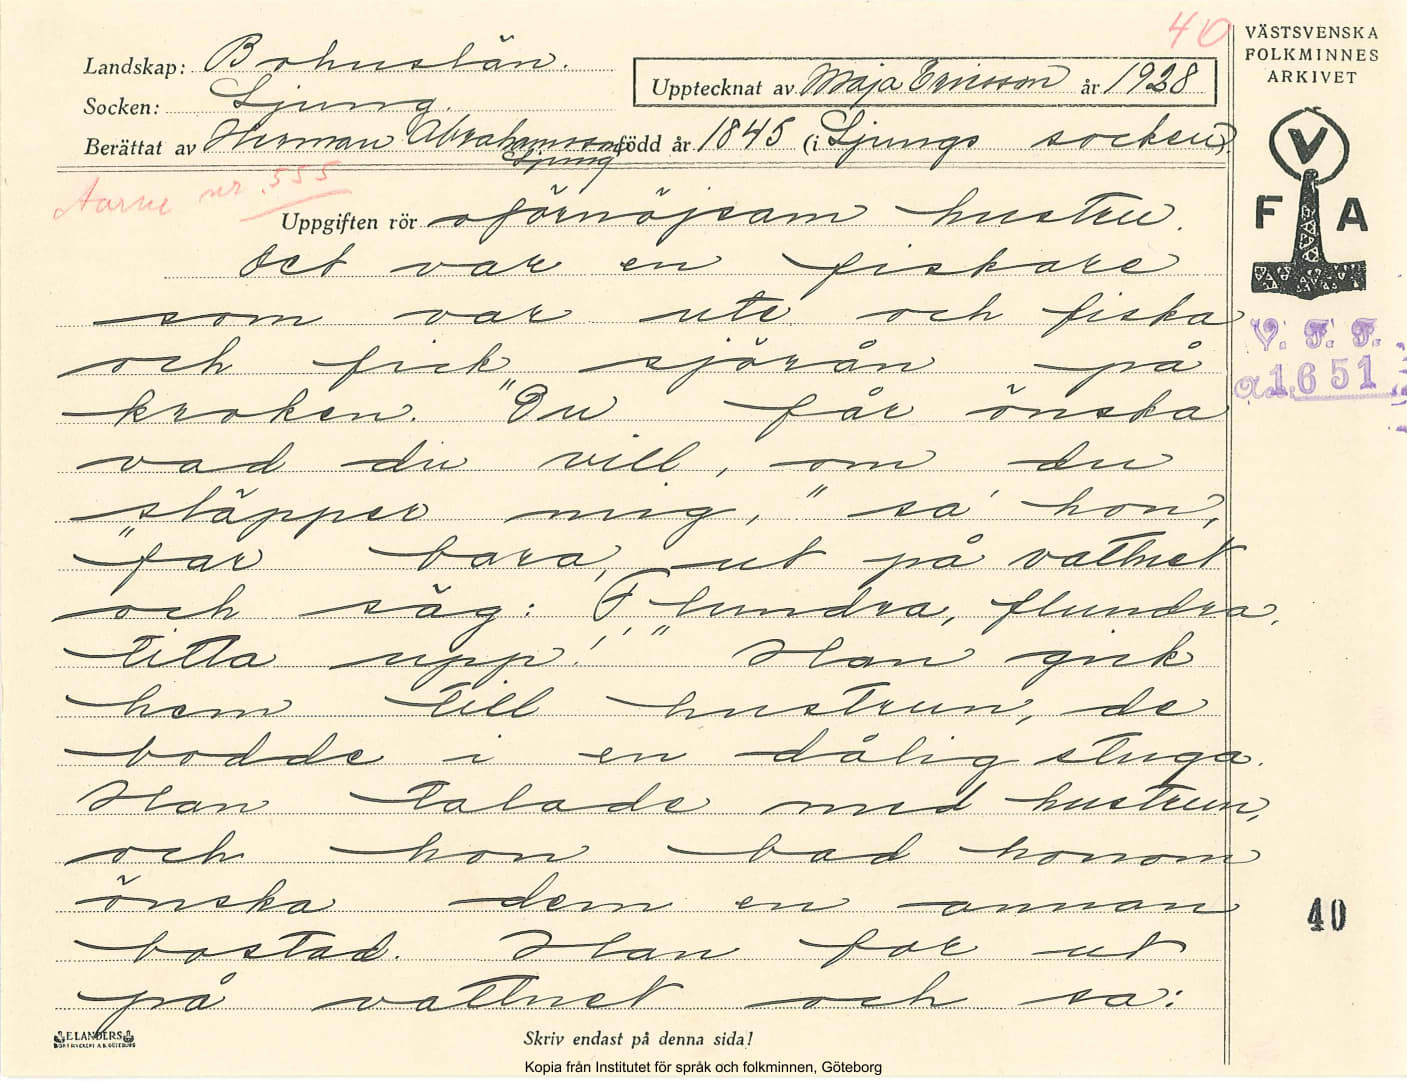 40
VÄSTSVENSKA
FOLKMINNES
ARKIVET
Landskap: Bohuslän.
Socken: Ljung.
Upptecknat av Maja Ericsson år 1928
Berättat av Herman Abrahamsson född år 1845 (i Ljungs socken).
Ljung
Aarne nr. 555
V
F A
Uppgiften rör oförnöjsam hustru.
Det var en fiskare
som var ute och fiska
och fick sjörån på
kroken. "Du får önska
vad du vill, om du
släpper mig," sa' hon,
"far bara, ut på vattnet
och säg: Flundra, flundra,
titta upp!'" Han gick
hem till hustrun, de
bodde i en dålig stuga.
Han talade med hustrun,
och hon bad honom
önska dem en annan
bostad. Han for ut
på vattnet och sa:
V. F. F.
a. 1651
40
ELANDERS
Skriv endast på denna sida!
Kopia från Institutet för språk och folkminnen, Göteborg